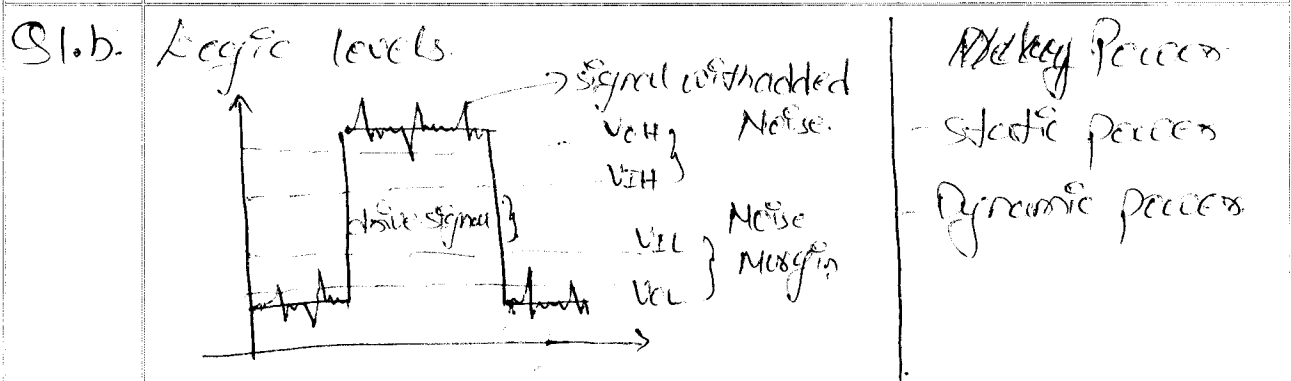 Q1.b. Logic levels.
signal with added
Noise.
VOH
VIH
drive signal
VIL
VOL
Noise
Margin
Power
- Static power
- Dynamic power